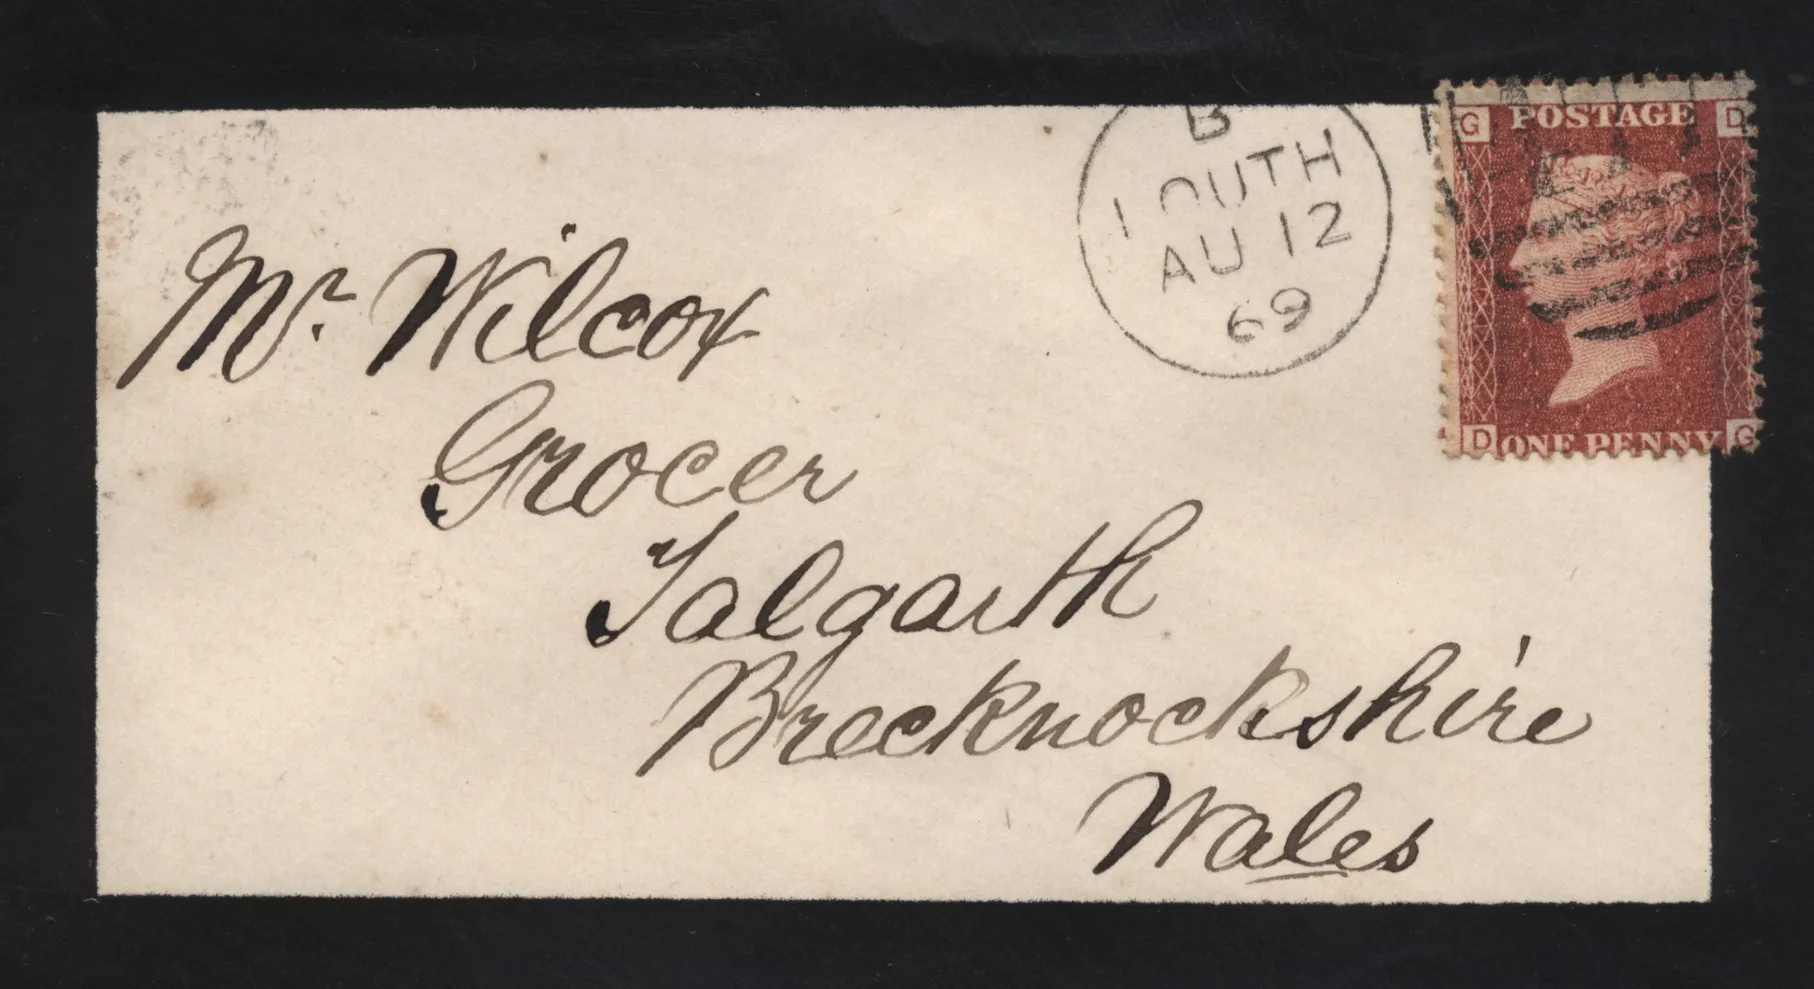 G POSTAGE D
B
LOUTH
AU 12
69
D ONE PENNY G
Mr. Wilcox
Grocer
Talgarth
Brecknockshire
Wales